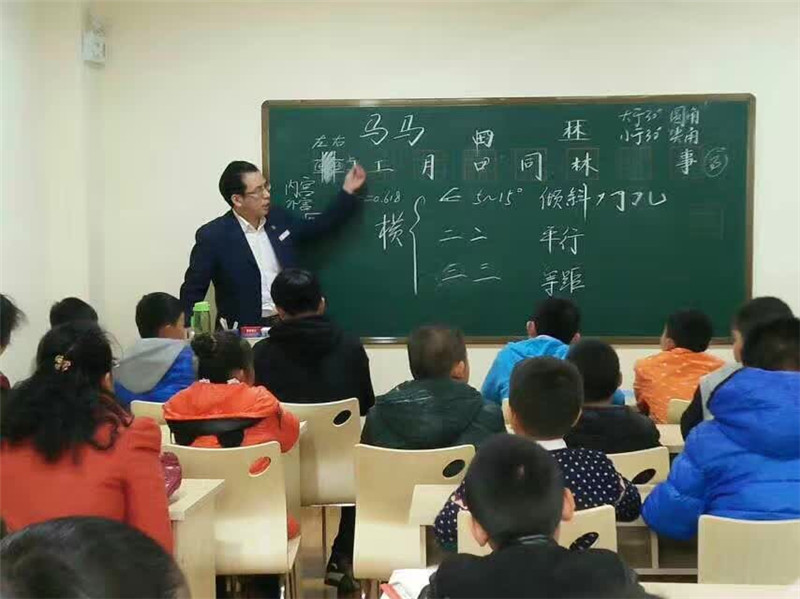 马马 田 木 大于30° 圆角
左右 小于30° 尖角
工 月 口 同 林 事 ③
内宫
外宫 0.618
横 ∠ 5~15° 倾斜
二 二 平行
三 三 等距